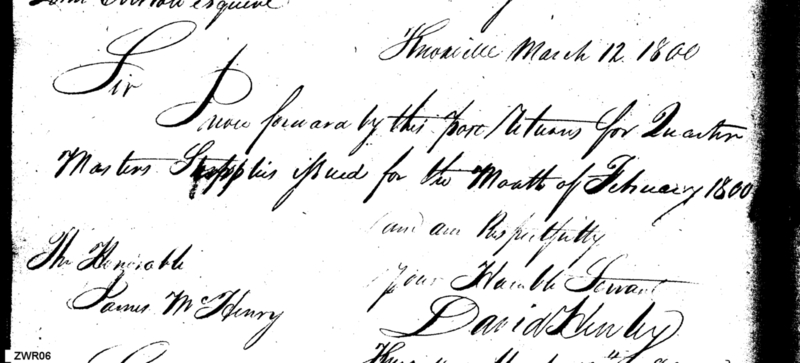 John Overton esquire
Knoxville March 12. 1800
Sir
I now forward by this post Returns for Quarter
Masters Supplies issued for the Month of February 1800
and am Respectfully
The Honorable
your Humble Servant
James McHenry
David Henley
ZWR06